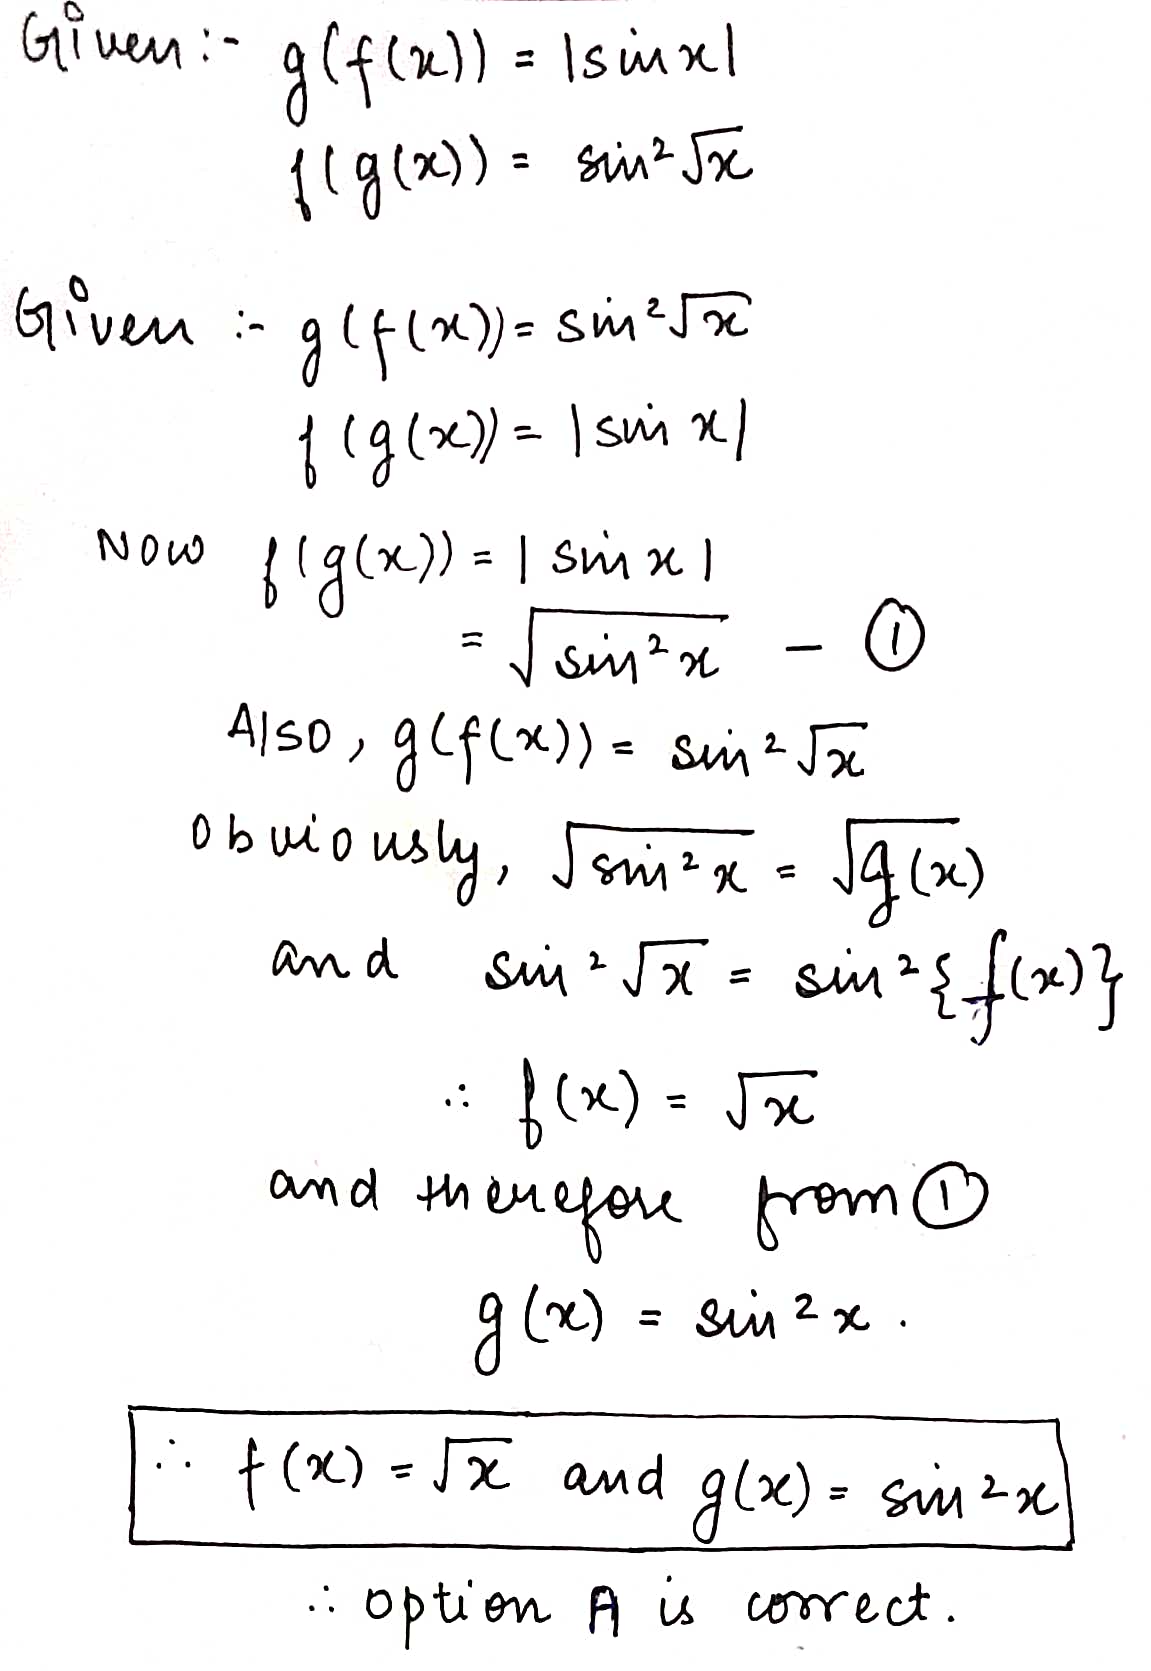 Given :- g(f(x)) = |sin x|
f(g(x)) = sin²√x
Given :- g(f(x)) = sin²√x
f(g(x)) = |sin x|
Now f(g(x)) = |sin x|
= √sin²x - ①
Also, g(f(x)) = sin²√x
obviously, √sin²x = √g(x)
and sin²√x = sin²{f(x)}
∴ f(x) = √x
and therefore from ①
g(x) = sin²x.
∴ f(x) = √x and g(x) = sin²x
∴ option A is correct.